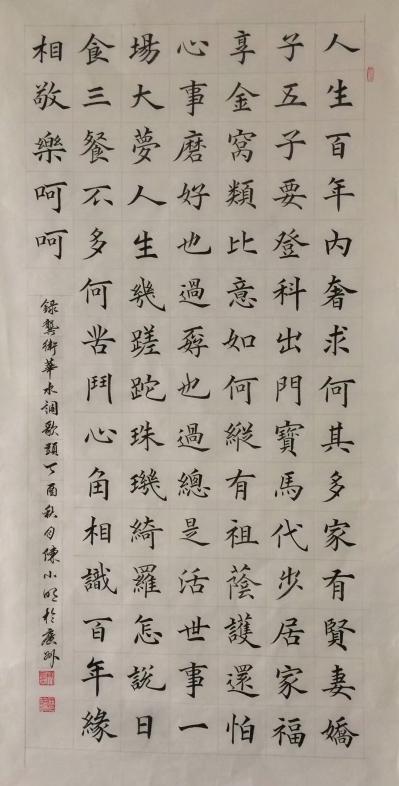 人生百年内奢求何其多家有賢妻嬌
子五子要登科出門寶馬代步居家福
享金窩類比意如何縱有祖蔭護還怕
心事磨好也過孬也過總是活世事一
場大夢人生幾蹉跎珠璣綺羅怎説日
食三餐不多何苦鬥心角相識百年緣
相敬樂呵呵
録龔華水調歌頭丁酉秋月陳小明於廣州